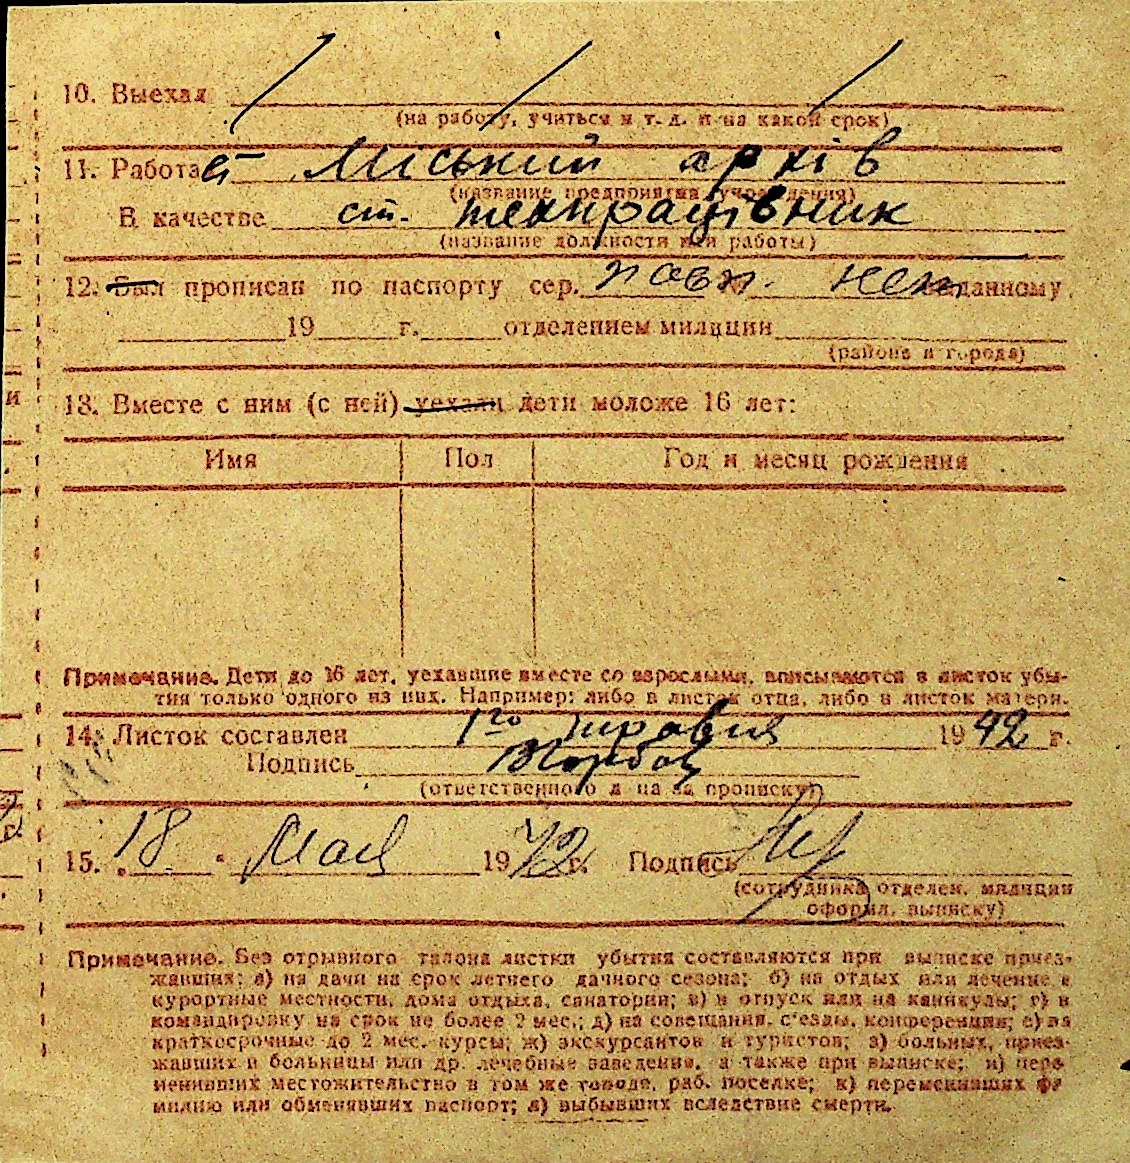 10. Выехал
(на работу, учиться и т. д. и на какой срок)
11. Работает Міський архів
(название предприятия, учреждения)
В качестве ст. техпрацівник
(название должности или работы)
12. Был прописан по паспорту сер. выданному
19 г. отделением милиции
(района и города)
13. Вместе с ним (с ней) уехали дети моложе 16 лет:
Имя Пол Год и месяц рождения
Примечание. Дети до 16 лет, уехавшие вместе со взрослыми, вписываются в листок убы-
тия только одного из них. Например: либо в листок отца, либо в листок матери.
14. Листок составлен 1го травня 1942 г.
Подпись
(ответственного л на за прописку)
15. 18 " Мая 1942 г. Подпись
(сотрудника отделен. милиции
оформл. выписку)
Примечание. Без отрывного талона листки убытия составляются при выписке приез-
жавших: а) на дачи на срок летнего дачного сезона; б) на отдых или лечение в
курортные местности, дома отдыха, санатории; в) в отпуск или на каникулы; г) в
командировку на срок не более 2 мес.; д) на совещания, с'езды, конференции; е) на
краткосрочные до 2 мес. курсы; ж) экскурсантов и туристов; з) больных, приез-
жавших в больницы или др. лечебные заведения, а также при выписке: и) пере
менивших местожительство в том же городе, раб. поселке; к) переменивших фа
милию или обменявших паспорт; л) выбывших вследствие смерти.